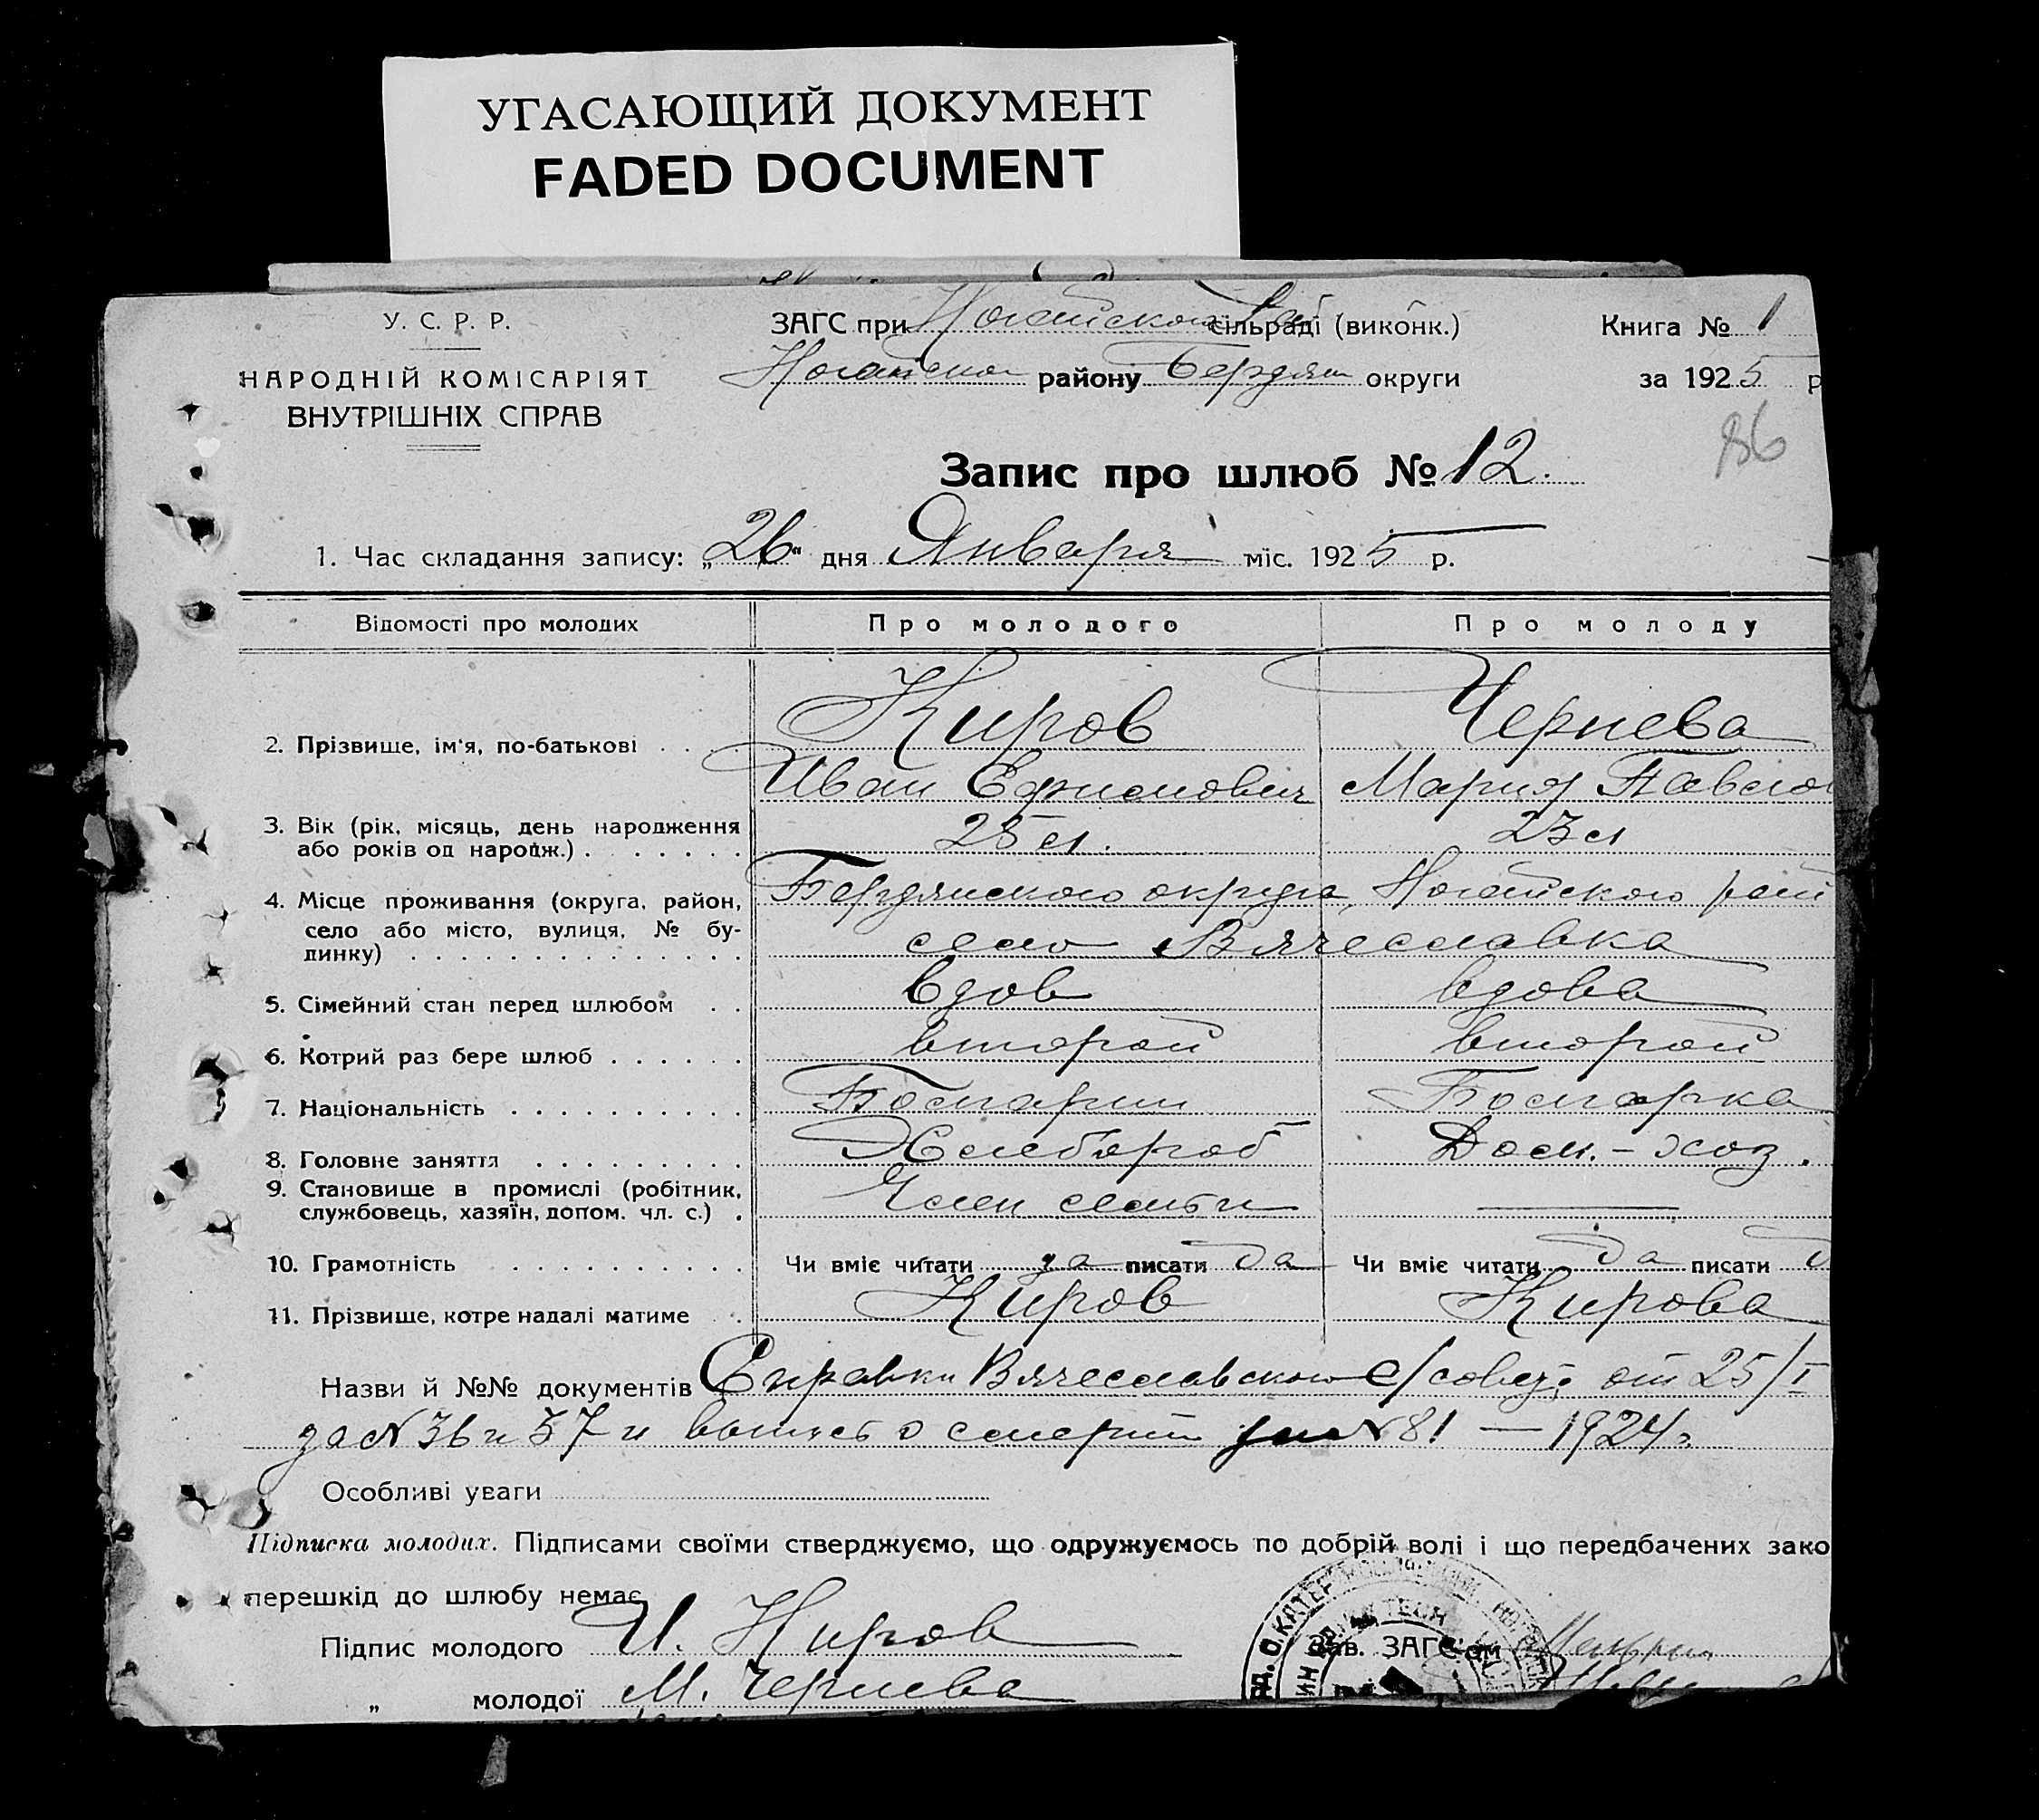 УГАСАЮЩИЙ ДОКУМЕНТ
FADED DOCUMENT
У. С. Р. Р.
НАРОДНІЙ КОМІСАРІЯТ
ВНУТРІШНІХ СПРАВ
ЗАГС при Ногайском сільраді (виконк.)
Ногайского району Бердян округи
Книга № 1
за 1925 р
86
Запис про шлюб № 12.
1. Час складання запису: „26“ дня Января міс. 1925 р.
Відомості про молодих Про молодого Про молоду
2. Прізвище, ім'я, по-батькові Киров Чернева
Иван Ефимович Мария Павло
3. Вік (рік, місяць, день народження або років од народж.) 25 л. 23 л
4. Місце проживання (округа, район, село або місто, вулиця, № будинку) Бердянского округа, Ногайского рай
село Вячеславка
5. Сімейний стан перед шлюбом вдов вдова
6. Котрий раз бере шлюб второй второй
7. Національність Болгарин Болгарка
8. Головне заняття Хлебороб Дом.-хоз.
9. Становище в промислі (робітник, службовець, хазяїн, допом. чл. с.) Член семьи
10. Грамотність Чи вміє читати да писати да Чи вміє читати да писати д
11. Прізвище, котре надалі матиме Киров Кирова
Назви й №№ документів Справки Вячеславского с/совета от 25/I
за № 36 и 37 и выпись о смерти № 81 — 1924 г.
Особливі уваги
Підписка молодих. Підписами своїми стверджуємо, що одружуємось по добрій волі і що передбачених зако
перешкід до шлюбу немає.
Підпис молодого И. Киров
Зав. ЗАГС'ом
„ молодої М. Чернева